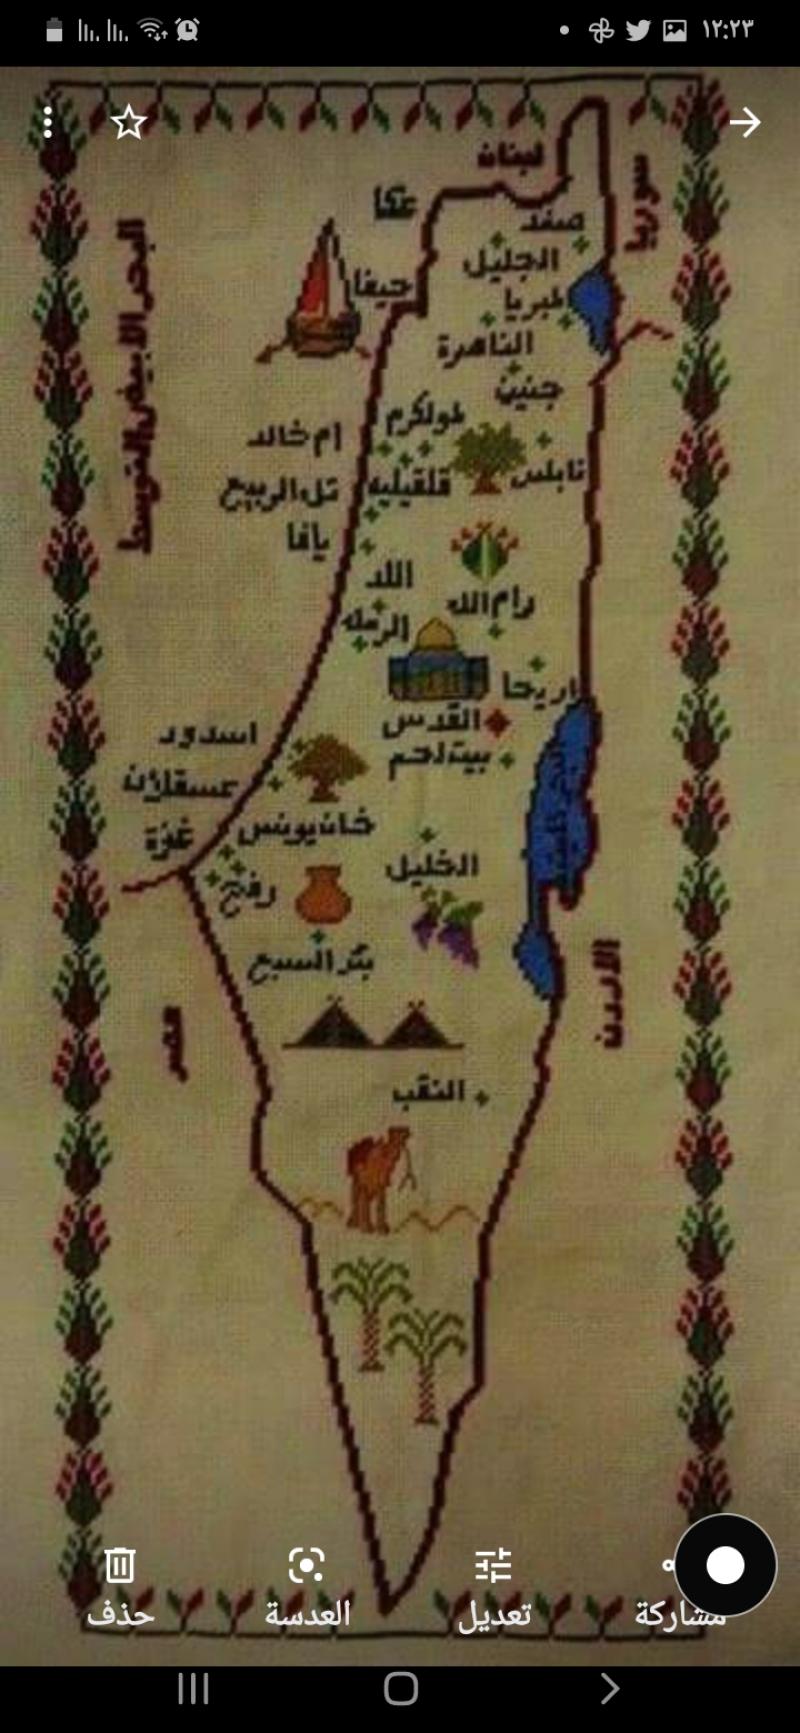 ١٢:٢٣
لبنان
سوريا
عكا
صفد
الجليل
حيفا
طبريا
الناصرة
جنين
البحر الابيض المتوسط
طولكرم
ام خالد
نابلس
قلقيليه
تل الربيع
يافا
اللد
رام الله
الرمله
اريحا
القدس
اسدود
بيت لحم
عسقلان
خان يونس
غزة
الخليل
رفح
بئر السبع
الاردن
مصر
النقب
مشاركة
تعديل
العدسة
حذف